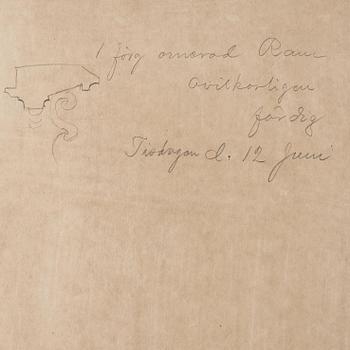 1 förg omerad Ram
ovilkorligen
färdig
Tisdagen d. 12 Juni